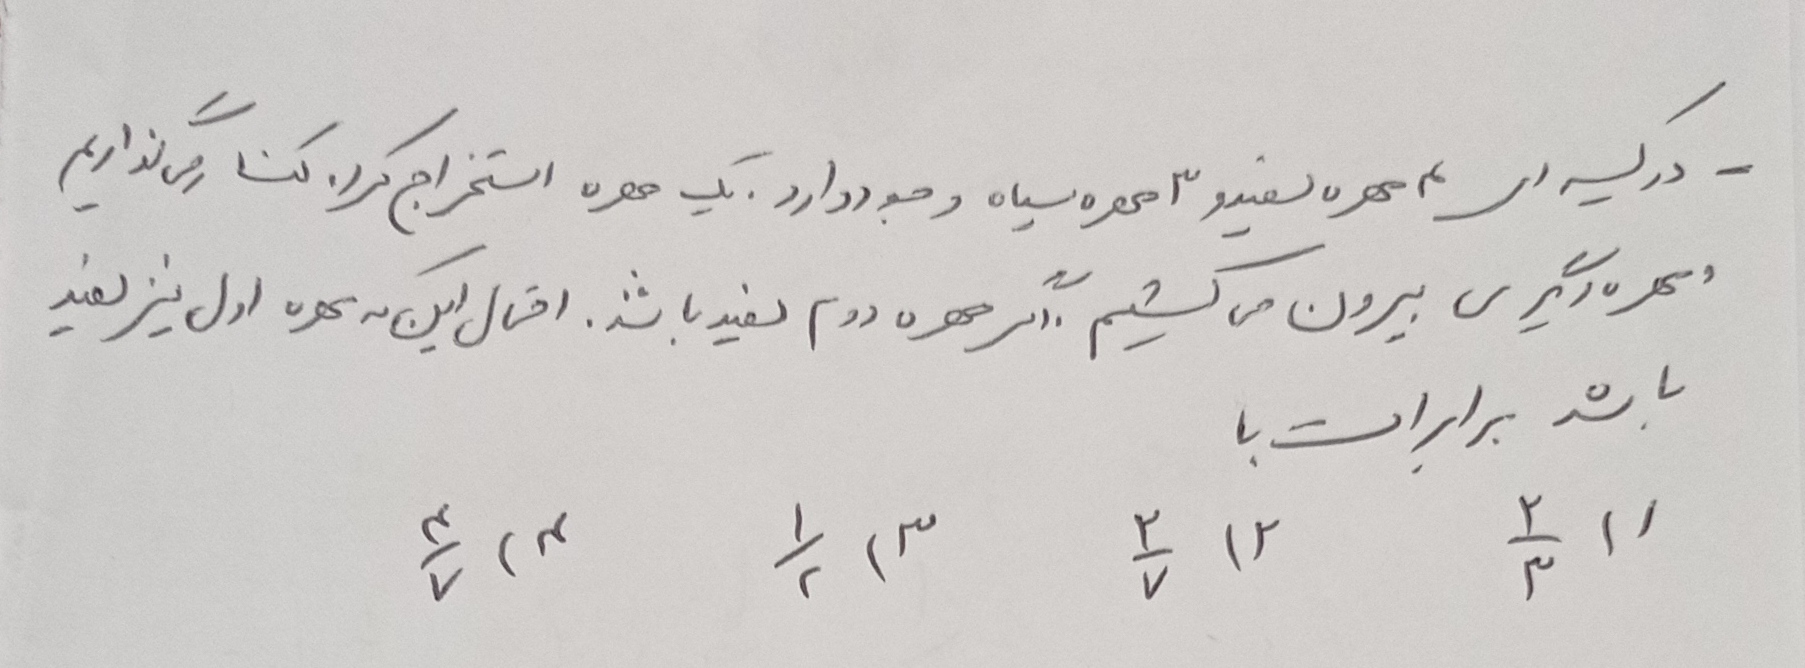 - در کیسه ای ۴ مهره سفید و ۳ مهره سیاه وجود دارد. یک مهره استخراج کرده کنار می گذاریم
و مهره دیگری بیرون می کشیم، اگر مهره دوم سفید باشد. احتمال این که مهره اول نیز سفید
باشد برابر است با
۱) ۲/۳ ۲) ۲/۷ ۳) ۱/۲ ۴) ۴/۷